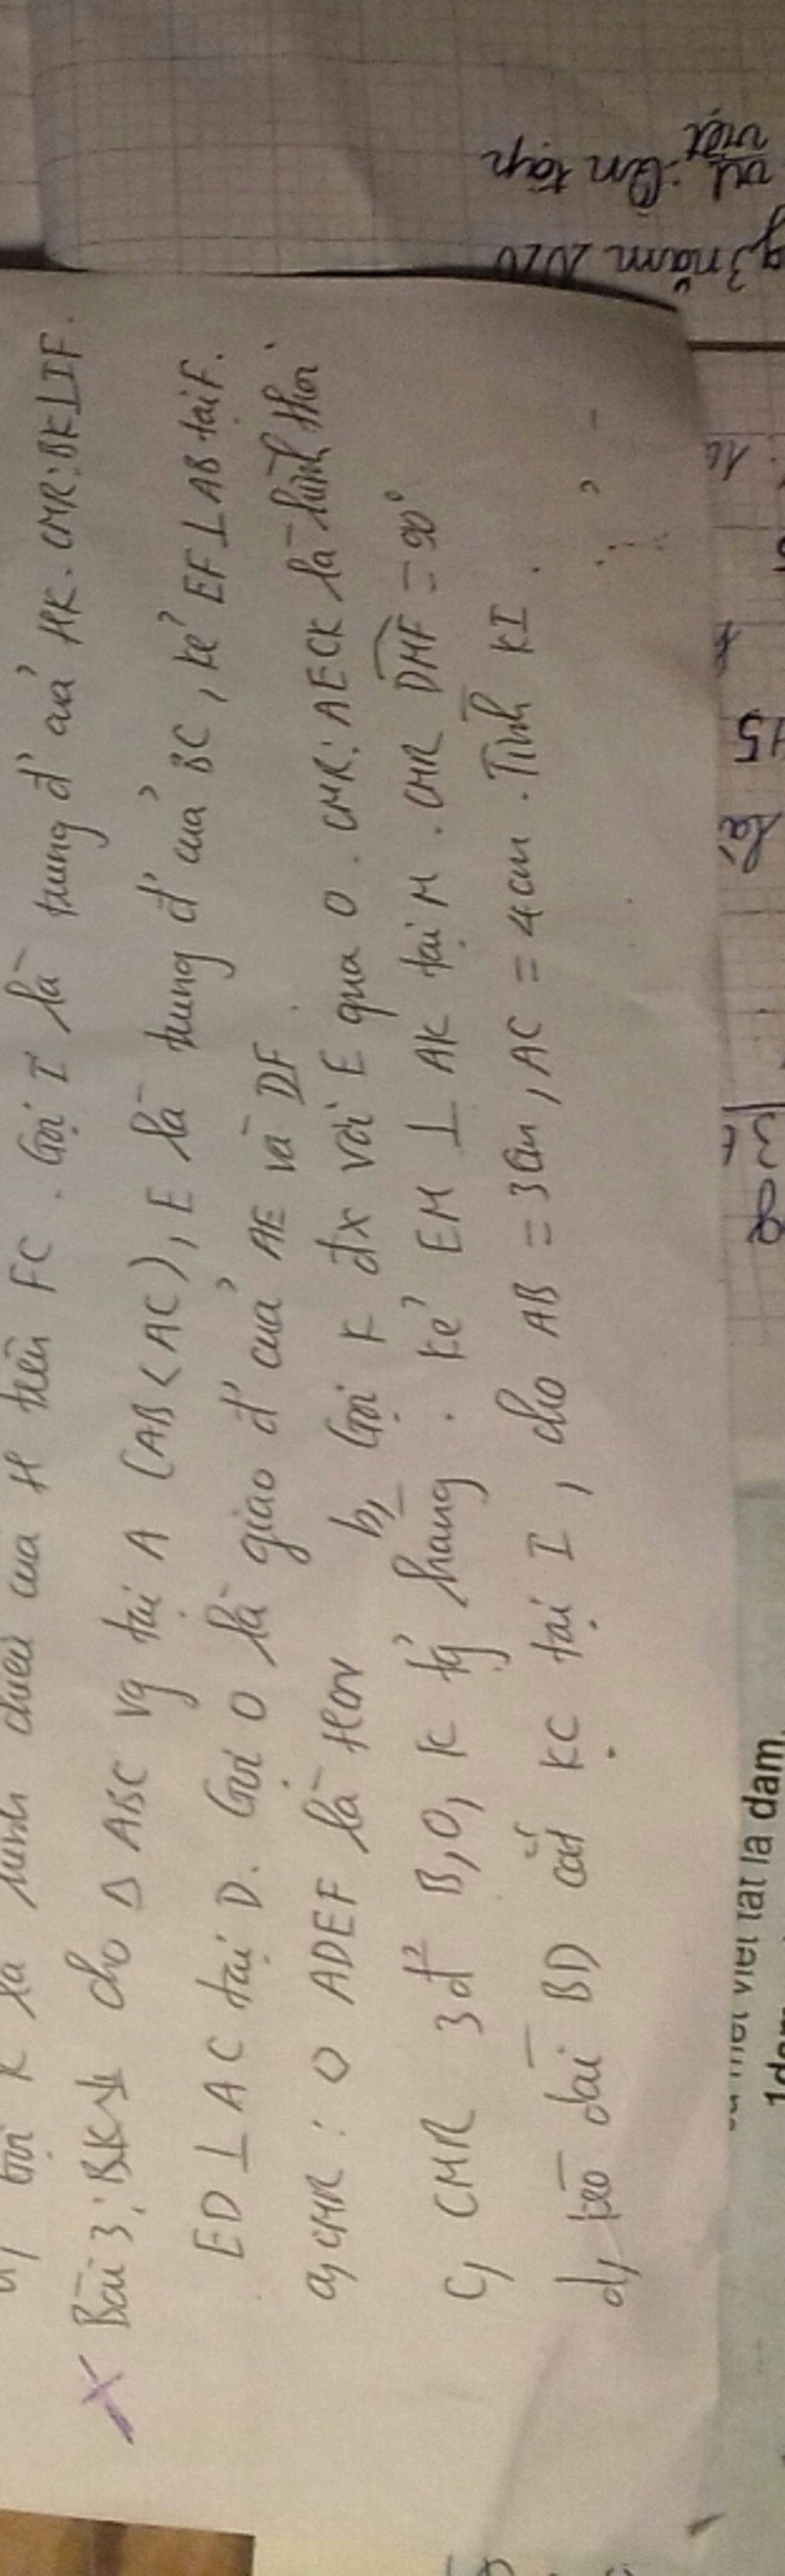 K là hình chiếu của H trên FC. Gọi I là trung đ' của HK. CMR: BK⊥IF.
Bài 3: cho Δ ABC vg tại A (AB<AC), E là trung đ' của BC, kẻ EF⊥AB tại F.
ED⊥AC tại D. Gọi O là giao đ' của AE và DF.
a, CMR: ADEF là HCN b, Gọi K đx với E qua O. CMR: AECK là hình thoi
c, CMR 3đ² B,O,K tg̉ hàng. kẻ EM ⊥ AK tại M. CMR DMF = 90°
d, kéo dài BD cắt KC tại I, cho AB = 3cm, AC = 4cm. Tính KI.
g 3 năm 2020
Ôn tập
việt
15
là
viết tắt là dam
1dam